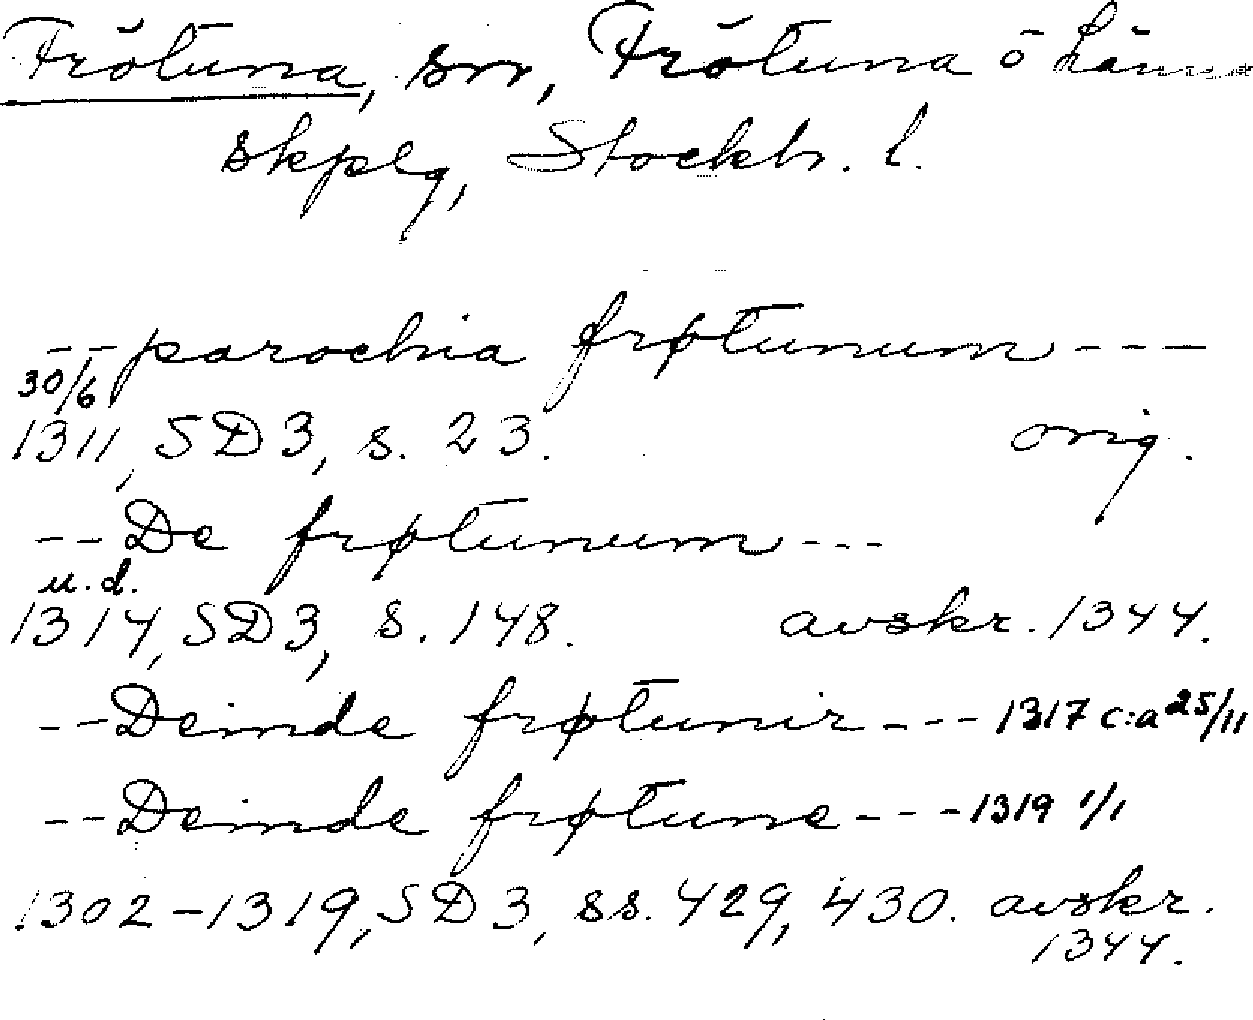 Frötuna, sn, Frötuna o Länna
skplg, Stockh. l.
-- parochia frøtunum ---
30/6
1311, SD3, s. 23. orig.
-- De frøtunum ---
u.d.
1314, SD3, s. 148. avskr. 1344.
-- Deinde frøtunir --- 1317 c:a 25/11
-- Deinde frøtune --- 1319 1/1
1302-1319, SD3, ss. 429, 430. avskr.
1344.